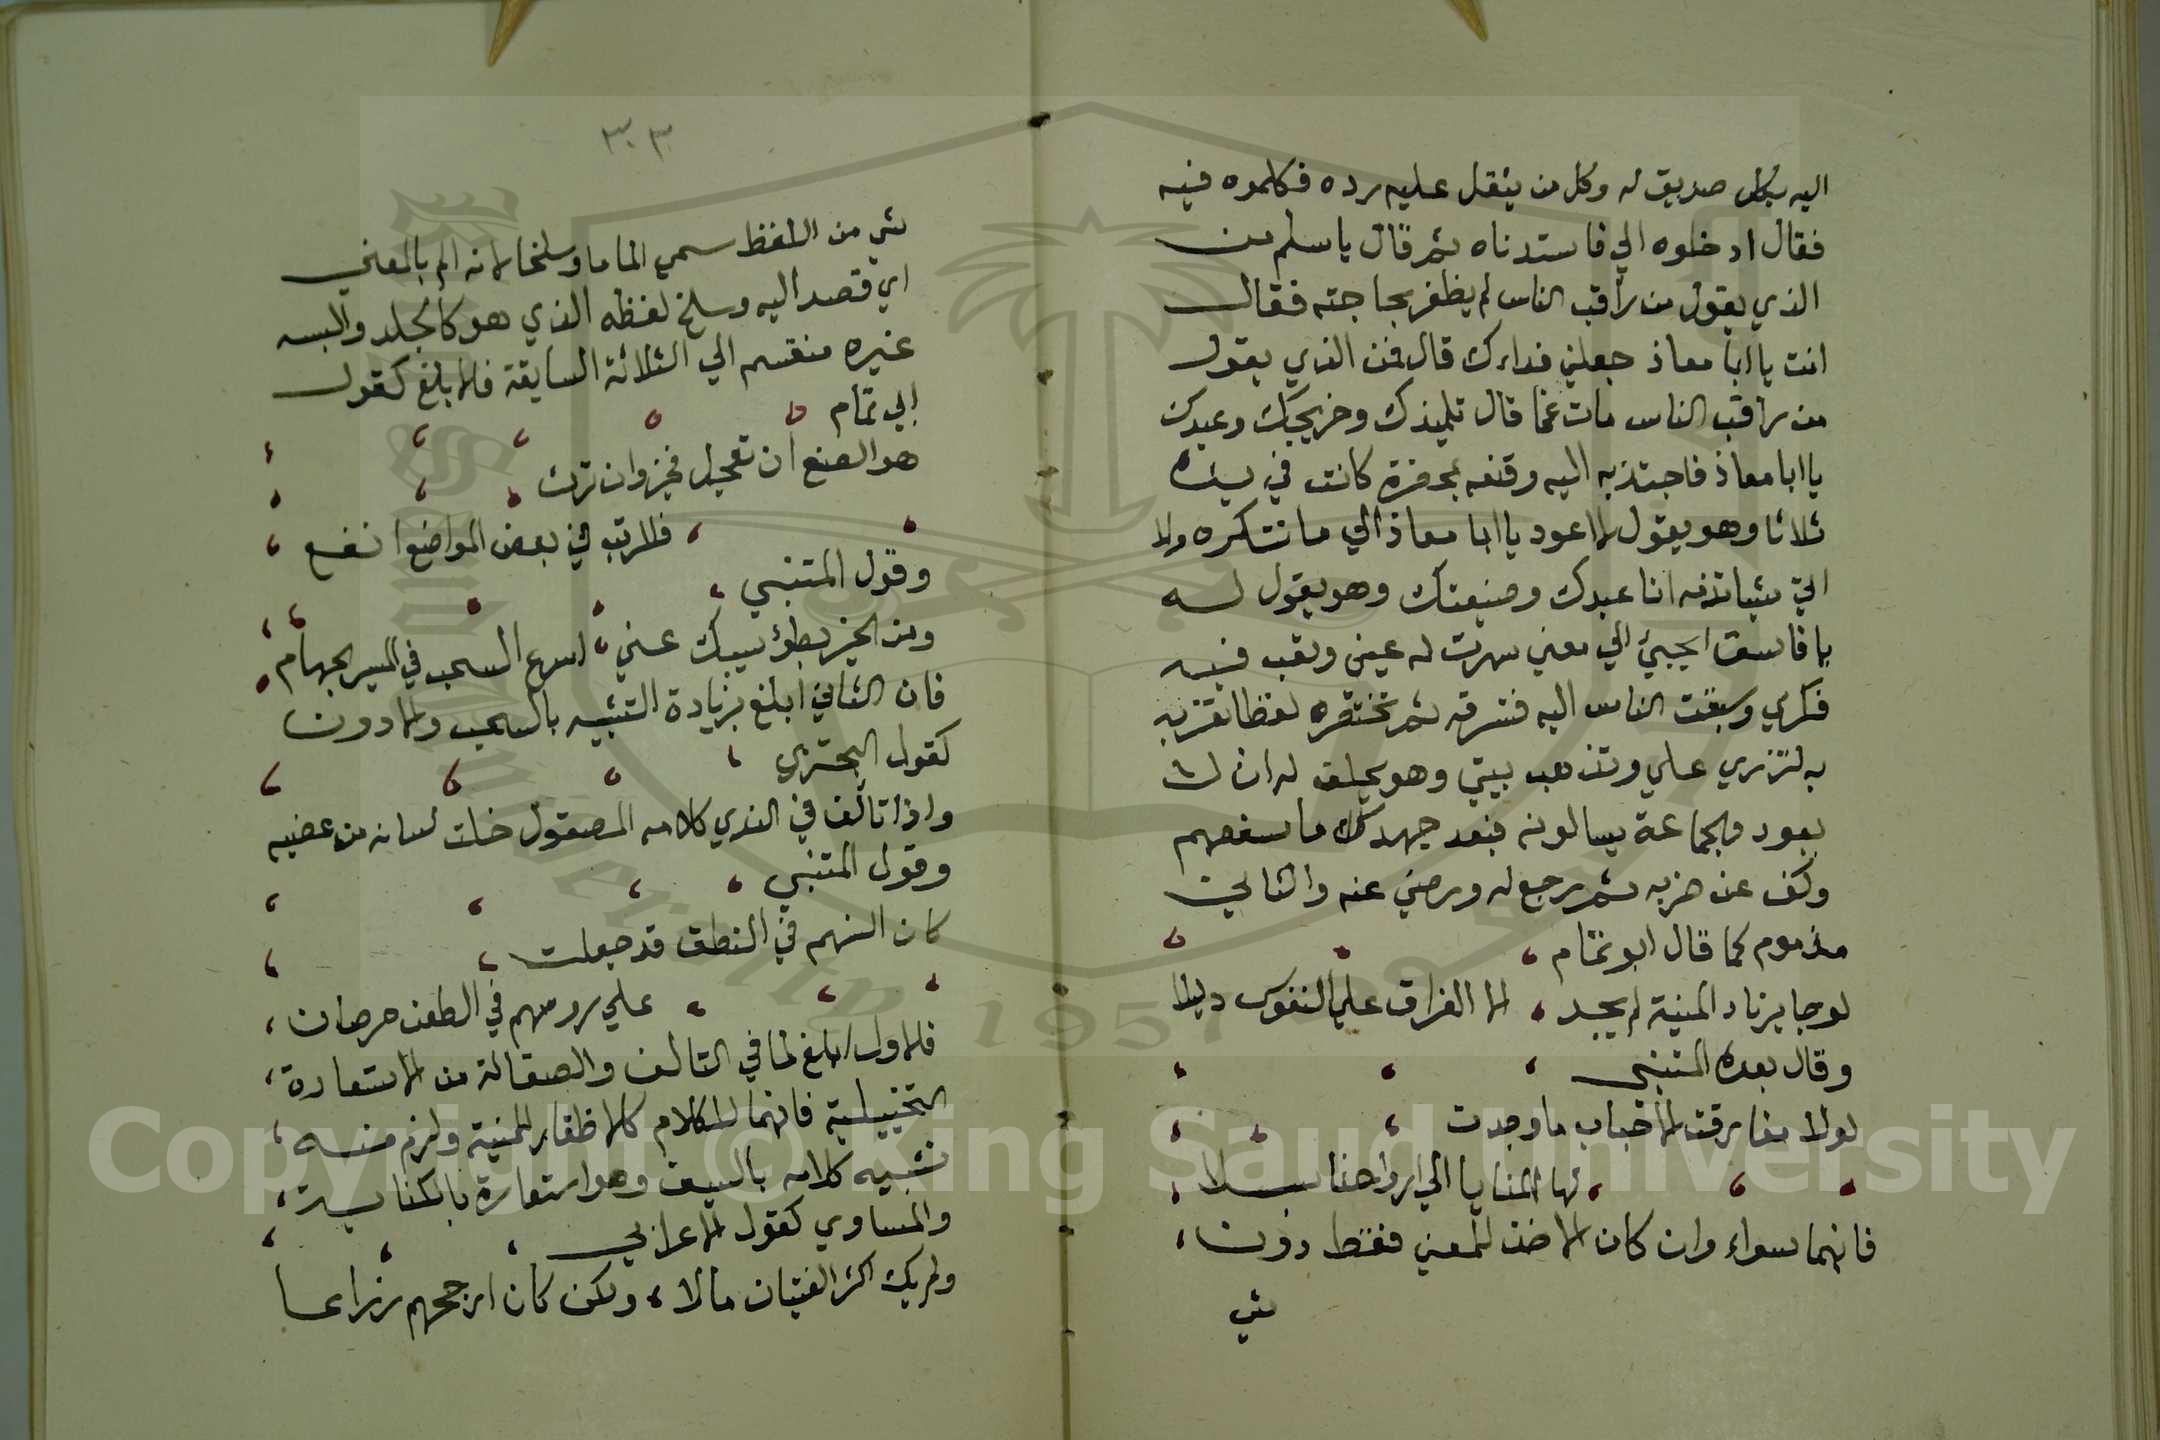 اليه بكل صديق له وكل من يثقل عليه رده فكلموه فيه
فقال ادخلوه الي فاستدناه ثم قال يا سلم من
الذي يقول من راقب الناس لم يظفر بحاجته فقال
انت يا ابا معاذ جعلني فداءك قال فمن الذي يقول
من راقب الناس مات غما قال تلميذك وخريجك وعبدك
يا ابا معاذ فاجتذبه اليه وقنعه بمخصرة كانت في يده
ثلاثا وهو يقول لا اعود يا ابا معاذ الي ما تنكره ولا
اتي شيا تذمه انا عبدك وصنيعتك وهو يقول له
يا فاسق اتجيئ الي معني سهرت له عيني وتعب فيه
فكري وسبقت الناس اليه فتسرقه ثم تختصره لفظا تقربه
به لتزري علي وتذهب بيتي وهو يحلف له ان لا
يعود والجماعة يسالونه فبعد جهد ما شفعهم
وكف عن ضربه ثم رجع له ورضي عنه والثالث
مذموم كما قال ابو تمام
لو جا يرتاد المنية لم يجد الا الفراق علي النفوس دليلا
وقال بعده المتنبي
لولا مفارقت الاحباب ما وجدت
لها المنايا الي ارواحنا سبلا
فانهما سواء وان كان الاخذ للمعني فقط دون
شي
٣٠٣
شي من اللفظ سمي الماما وسلخا لانه الم بالمعني
اي قصد اليه وسلخ لفظه الذي هو كالجلد والبسه
غيره منقسم الي الثلاثة السابقة فالابلغ كقول
ابي تمام
هو الصنع ان تعجيل فخير وان ترث
فللريث في بعض المواضع انفع
وقول المتنبي
ومن الخير بطؤ سيبك عني اسرع السحب في المسير الجهام
فان الثاني ابلغ بزيادة التشبيه بالسحب والادون
كقول البحتري
واذا تالف في الندي كلامه المصقول خلت لسانه من عضبه
وقول المتنبي
كان السنهم في النطق قد جعلت
علي رووسهم في الطعن خرصانا
فالاول ابلغ لما في التالف والصقالة من الاستعارة
التخييلية فانهما للكلام كالاظفار للمنية ولزم منه
تشبيه كلامه بالسيف وهو استعارة بالكناية
والمساوي كقول الاعرابي
ولم يك اكثر الفتيان مالا ولكن كان ارجحهم ذراعا
Copyright © King Saud University
1957